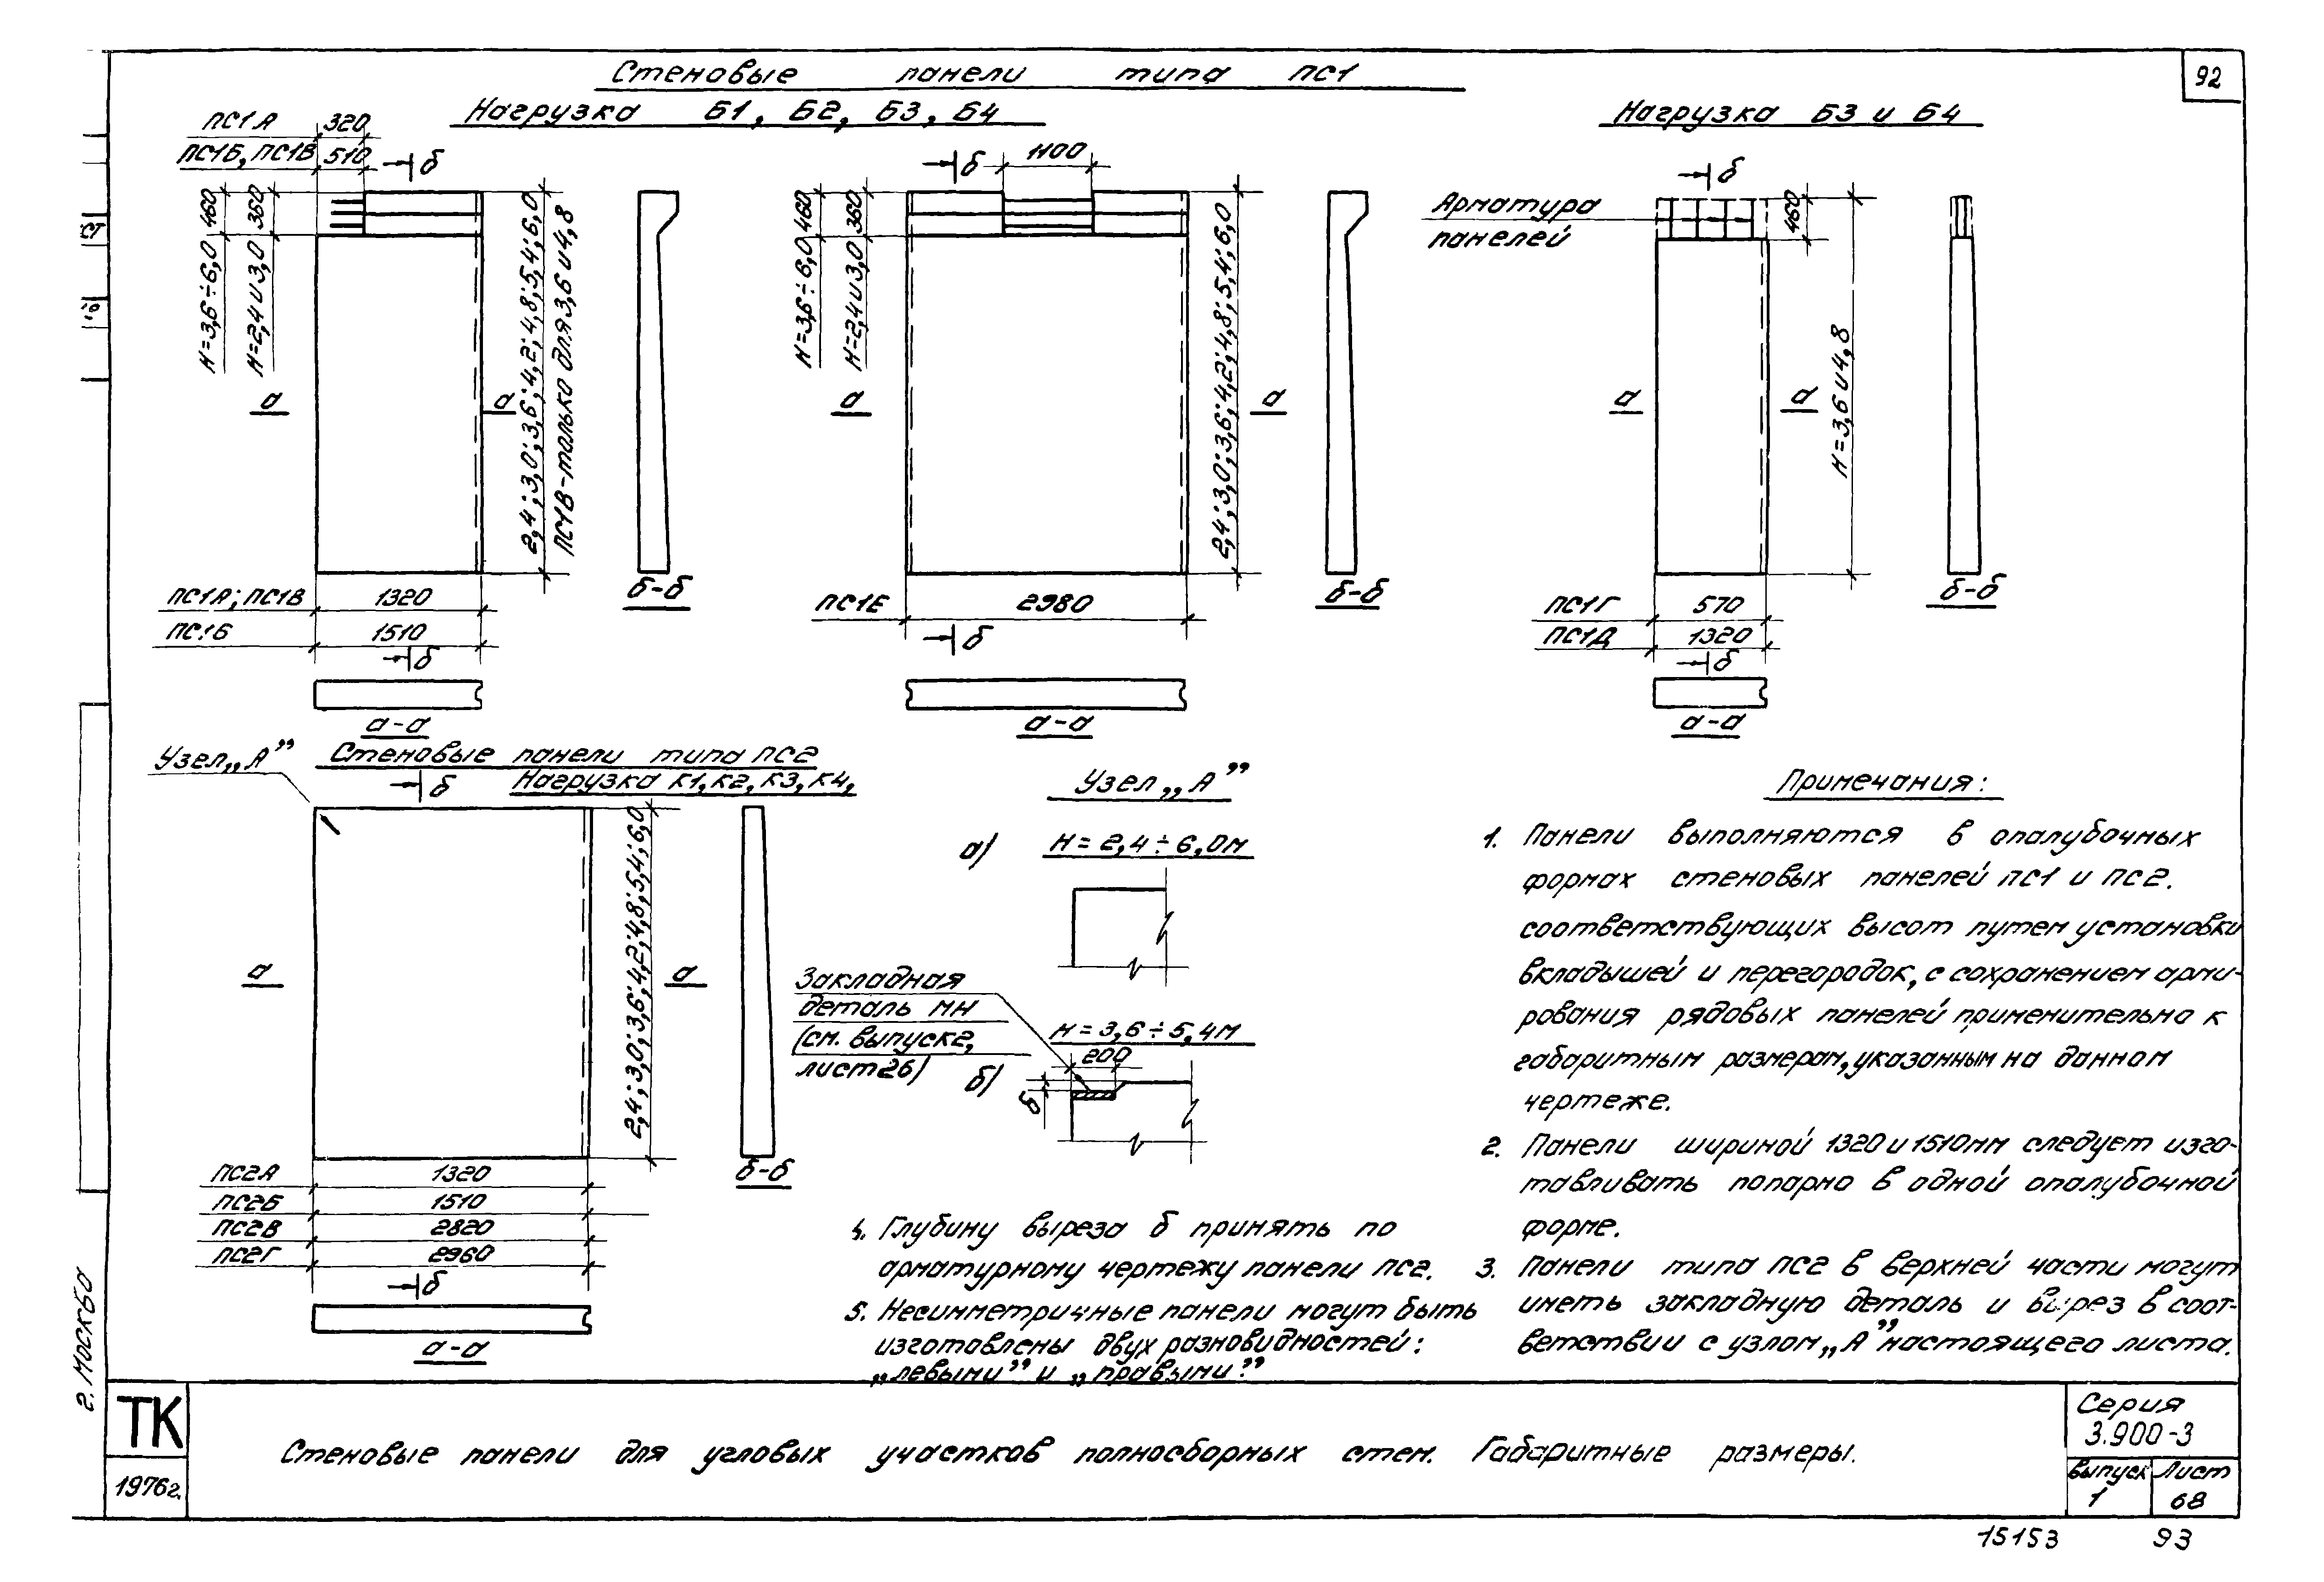 92
Стеновые панели типа ПС1
Нагрузка Б1, Б2, Б3, Б4
Нагрузка Б3 и Б4
ПС1А 320
ПС1Б, ПС1В 510
б
460
360
Н=3,6÷6,0
Н=2,4и3,0
2,4; 3,0; 3,6; 4,2; 4,8; 5,4; 6,0
ПС1В-только для 3,6 и 4,8
а
а
ПС1А; ПС1В 1320
ПС1Б 1510
б
б-б
а-а
б
1100
460
360
Н=3,6÷6,0
Н=2,4и3,0
2,4; 3,0; 3,6; 4,2; 4,8; 5,4; 6,0
а
а
ПС1Е 2980
б
б-б
а-а
б
Арматура
панелей
460
Н=3,6 и 4,8
а
а
ПС1Г 570
ПС1Д 1320
б
б-б
а-а
Узел „А”
Стеновые панели типа ПС2
Нагрузка К1, К2, К3, К4,
б
2,4; 3,0; 3,6; 4,2; 4,8; 5,4; 6,0
а
а
ПС2А 1320
ПС2Б 1510
ПС2В 2820
ПС2Г 2960
б
б-б
а-а
Узел „А”
а) Н = 2,4 ÷ 6,0м
Закладная
деталь МН
(см. выпуск 2,
лист 26)
Н = 3,6 ÷ 5,4м
б)
200
δ
Примечания:
1. Панели выполняются в опалубочных
формах стеновых панелей ПС1 и ПС2.
соответствующих высот путем установки
вкладышей и перегородок, с сохранением арми-
рования рядовых панелей применительно к
габаритным размерам, указанным на данном
чертеже.
2. Панели шириной 1320 и 1510мм следует изго-
тавливать попарно в одной опалубочной
форме.
3. Панели типа ПС2 в верхней части могут
иметь закладную деталь и вырез в соот-
ветствии с узлом „А” настоящего листа.
4. Глубину выреза δ принять по
арматурному чертежу панели ПС2.
5. Несимметричные панели могут быть
изготовлены двух разновидностей:
„левыми” и „правыми”.
г. Москва
ТК
1976г.
Стеновые панели для угловых участков полносборных стен. Габаритные размеры.
Серия
3.900-3
Выпуск Лист
1 68
15153 93